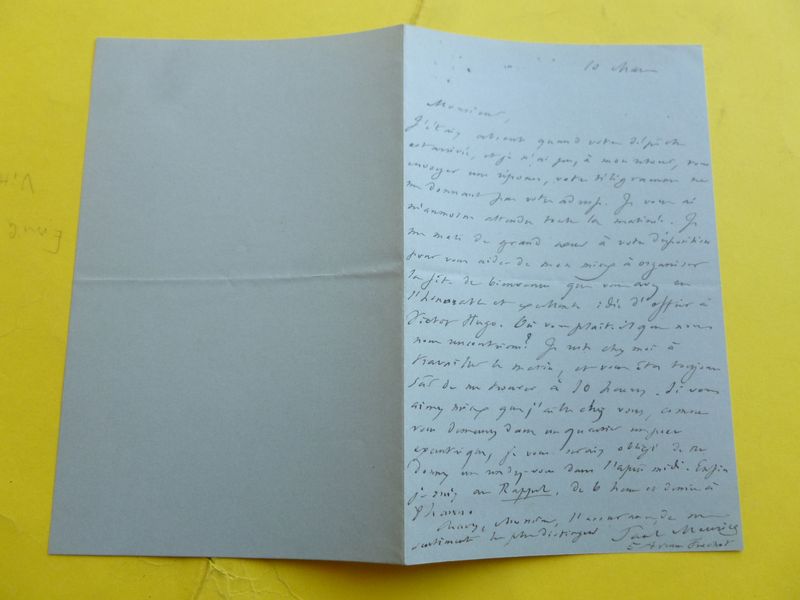 10 Mars
Monsieur,
J'étais absent quand votre dépêche
est arrivée, et je n'ai pu, à mon retour, vous
envoyer une réponse, votre télégramme ne
me donnant pas votre adresse. Je vous ai
néanmoins attendu toute la matinée. Je
me mets de grand cœur à votre disposition
pour vous aider de mon mieux à organiser
la fête de bienvenue que vous avez eu
l'honorable et excellente idée d'offrir à
Victor Hugo. Où vous plaît-il que nous
nous rencontrions? Je reste chez moi à
travailler le matin, et vous êtes toujours
sûr de me trouver à 10 heures. Si vous
aimez mieux que j'aille chez vous, comme
vous demeurez dans un quartier un peu
excentrique, je vous serais obligé de me
donner un rendez-vous dans l'après midi. Enfin
je suis au Rappel, de 6 heures et demie à
8 heures.
Monsieur, l'assurance de mes
sentiments les plus distingués Paul Meurice
5 Avenue Trochot